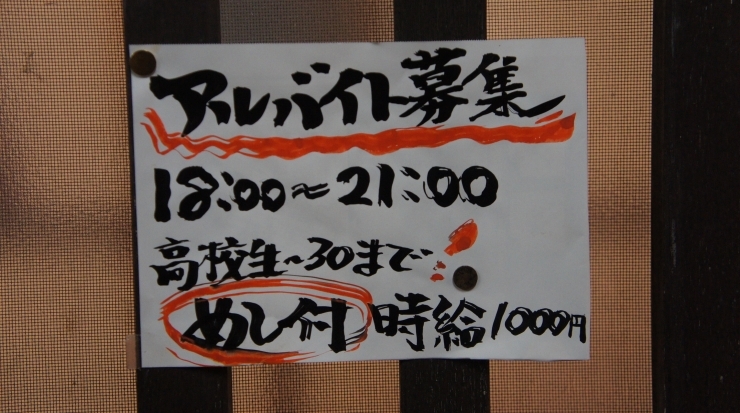 アルバイト募集
18:00~21:00
高校生~30まで!
めし付 時給1000円